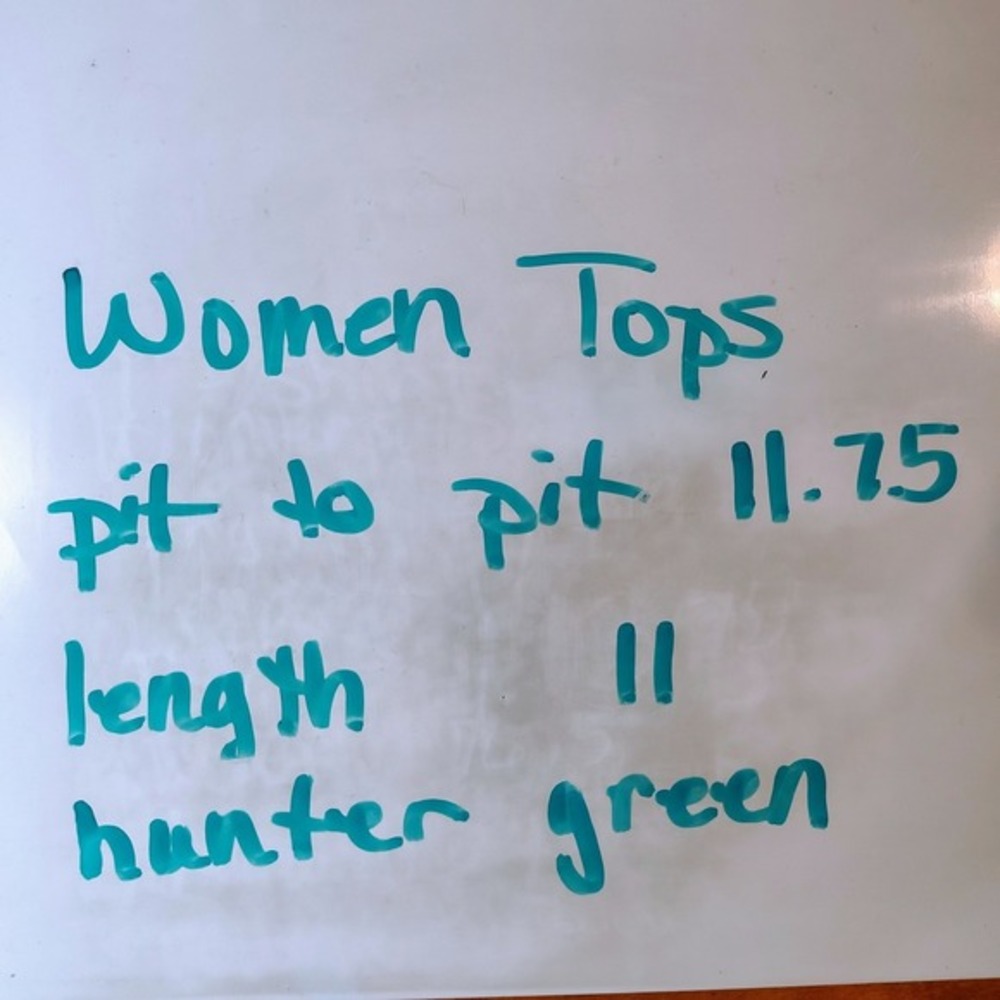 Women Tops
pit to pit 11.75
length 11
hunter green